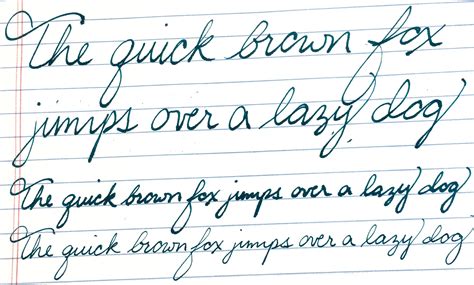 The quick brown fox
jumps over a lazy dog
The quick brown fox jumps over a lazy dog
The quick brown fox jumps over a lazy dog